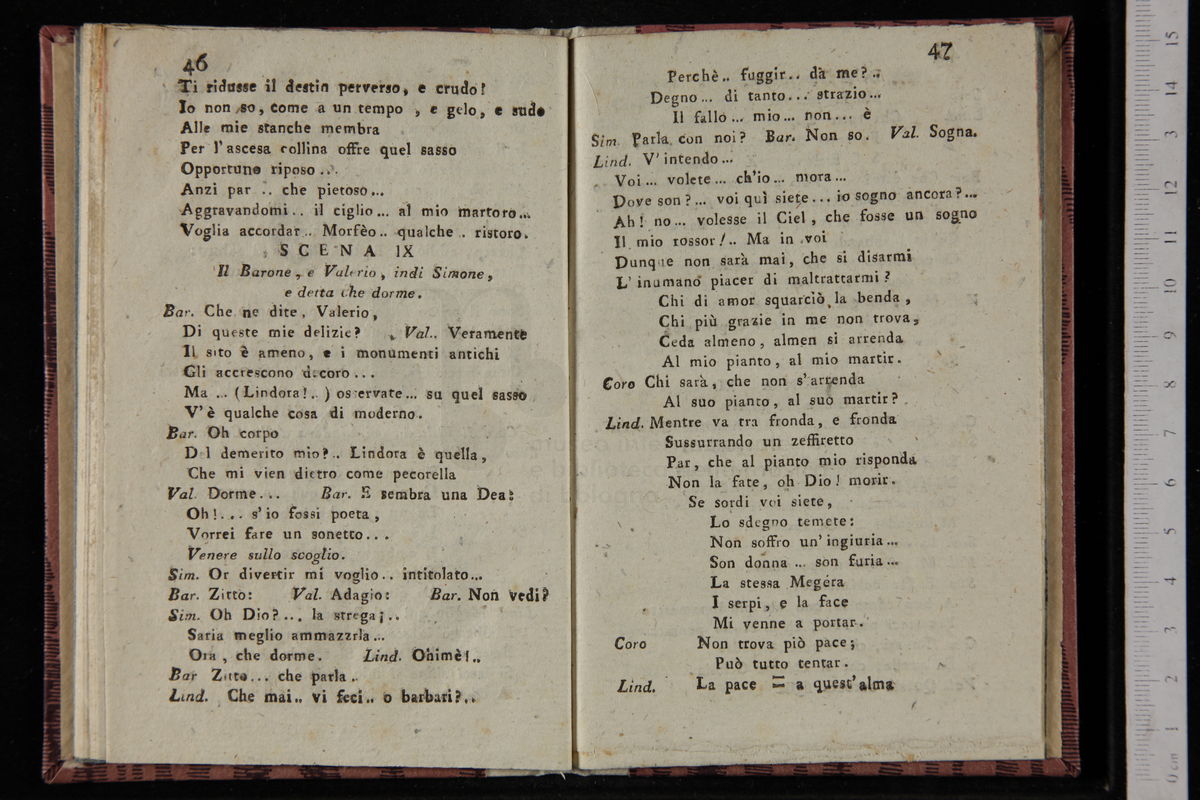 46
Ti ridusse il destin perverso, e crudo!
Io non so, come a un tempo , e gelo, e sudo
Alle mie stanche membra
Per l'ascesa collina offre quel sasso
Opportuno riposo ...
Anzi par .. che pietoso...
Aggravandomi.. il ciglio... al mio martoro...
Voglia accordar.. Morfèo.. qualche .. ristoro.
SCENA IX
Il Barone, e Valerio, indi Simone,
e detta che dorme.
Bar. Che ne dite, Valerio,
Di queste mie delizie? Val.. Veramente
Il sito è ameno, e i monumenti antichi
Gli accrescono decoro...
Ma ... (Lindora!..) osservate... su quel sasso
V'è qualche cosa di moderno.
Bar. Oh corpo
Del demerito mio?.. Lindora è quella,
Che mi vien dietro come pecorella
Val. Dorme... Bar. E sembra una Dea:
Oh!... s'io fossi poeta,
Vorrei fare un sonetto...
Venere sullo scoglio.
Sim. Or divertir mi voglio.. intitolato...
Bar. Zitto: Val. Adagio: Bar. Non vedi?
Sim. Oh Dio?... la strega;..
Saria meglio ammazzrla...
Ora, che dorme. Lind. Ohimè!..
Bar Zitto... che parla..
Lind. Che mai.. vi feci.. o barbari?..
47
Perchè.. fuggir.. da me?..
Degno... di tanto... strazio...
Il fallo... mio... non... è
Sim. Parla con noi? Bar. Non so. Val. Sogna.
Lind. V'intendo...
Voi... volete... ch'io... mora...
Dove son?... voi quì siete... io sogno ancora?...
Ah! no... volesse il Ciel, che fosse un sogno
Il mio rossor!.. Ma in voi
Dunque non sarà mai, che si disarmi
L'inumano piacer di maltrattarmi?
Chi di amor squarciò la benda,
Chi più grazie in me non trova,
Ceda almeno, almen si arrenda
Al mio pianto, al mio martir.
Coro Chi sarà, che non s'arrenda
Al suo pianto, al suo martir?
Lind. Mentre va tra fronda, e fronda
Sussurrando un zeffiretto
Par, che al pianto mio risponda
Non la fate, oh Dio! morir.
Se sordi voi siete,
Lo sdegno temete:
Non soffro un'ingiuria...
Son donna ... son furia...
La stessa Megera
I serpi, e la face
Mi venne a portar.
Coro Non trova piò pace;
Può tutto tentar.
Lind. La pace = a quest'alma
15
14
13
12
11
10
9
8
7
6
5
4
3
2
1
0 cm